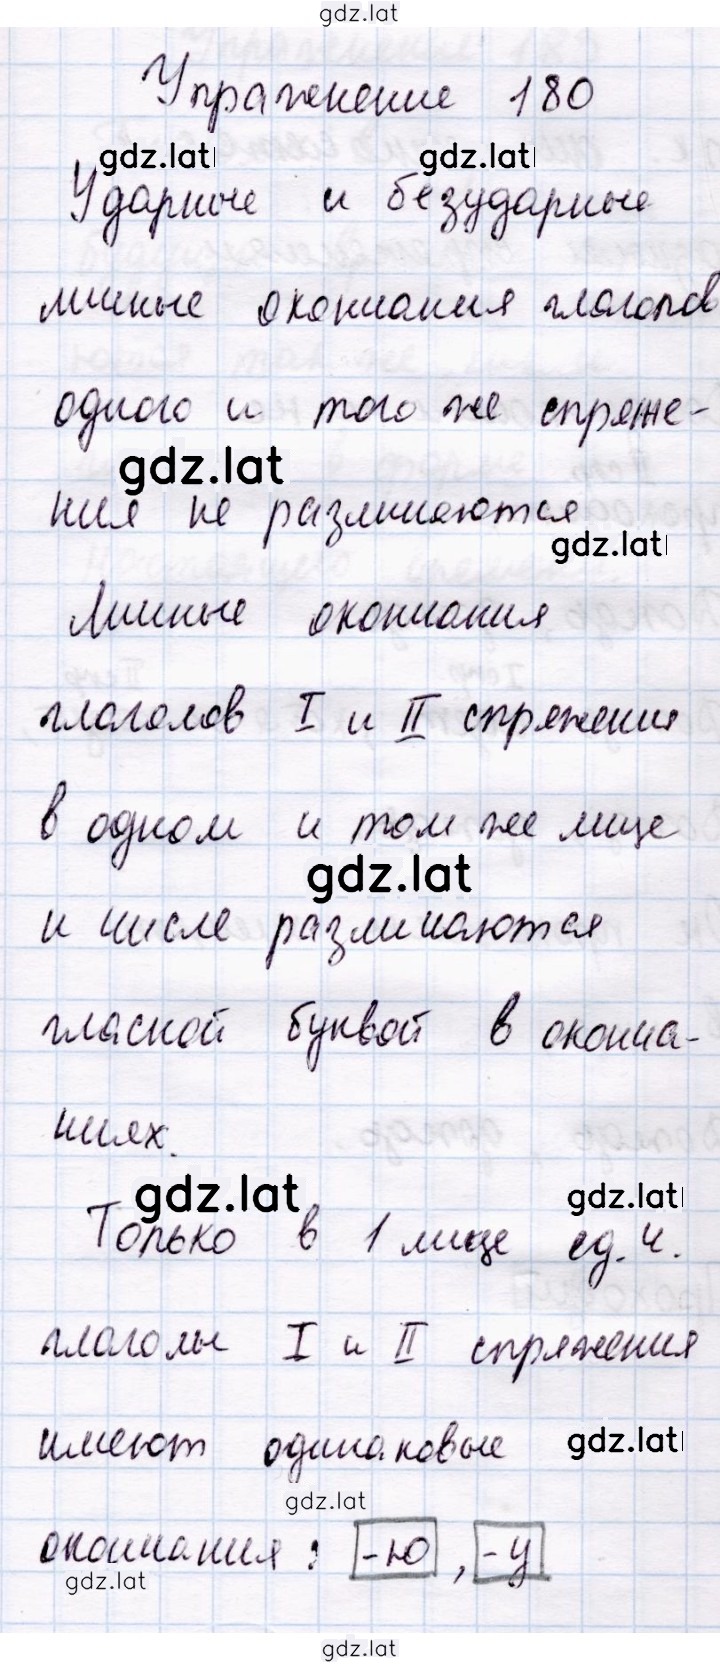 gdz.lat
Упражнение 180
gdz.lat gdz.lat
Ударные и безударные
личные окончания глаголов
одного и того же спряже-
gdz.lat
ния не различаются
gdz.lat
Личные окончания
глаголов I и II спряжения
в одном и том же лице
gdz.lat
и числе различаются
гласной буквой в оконча-
ниях.
gdz.lat gdz.lat
Только в 1 лице ед. ч.
глаголы I и II спряжения
имеют одинаковые
gdz.lat
gdz.lat
окончания: -ю, -у
gdz.lat
gdz.lat